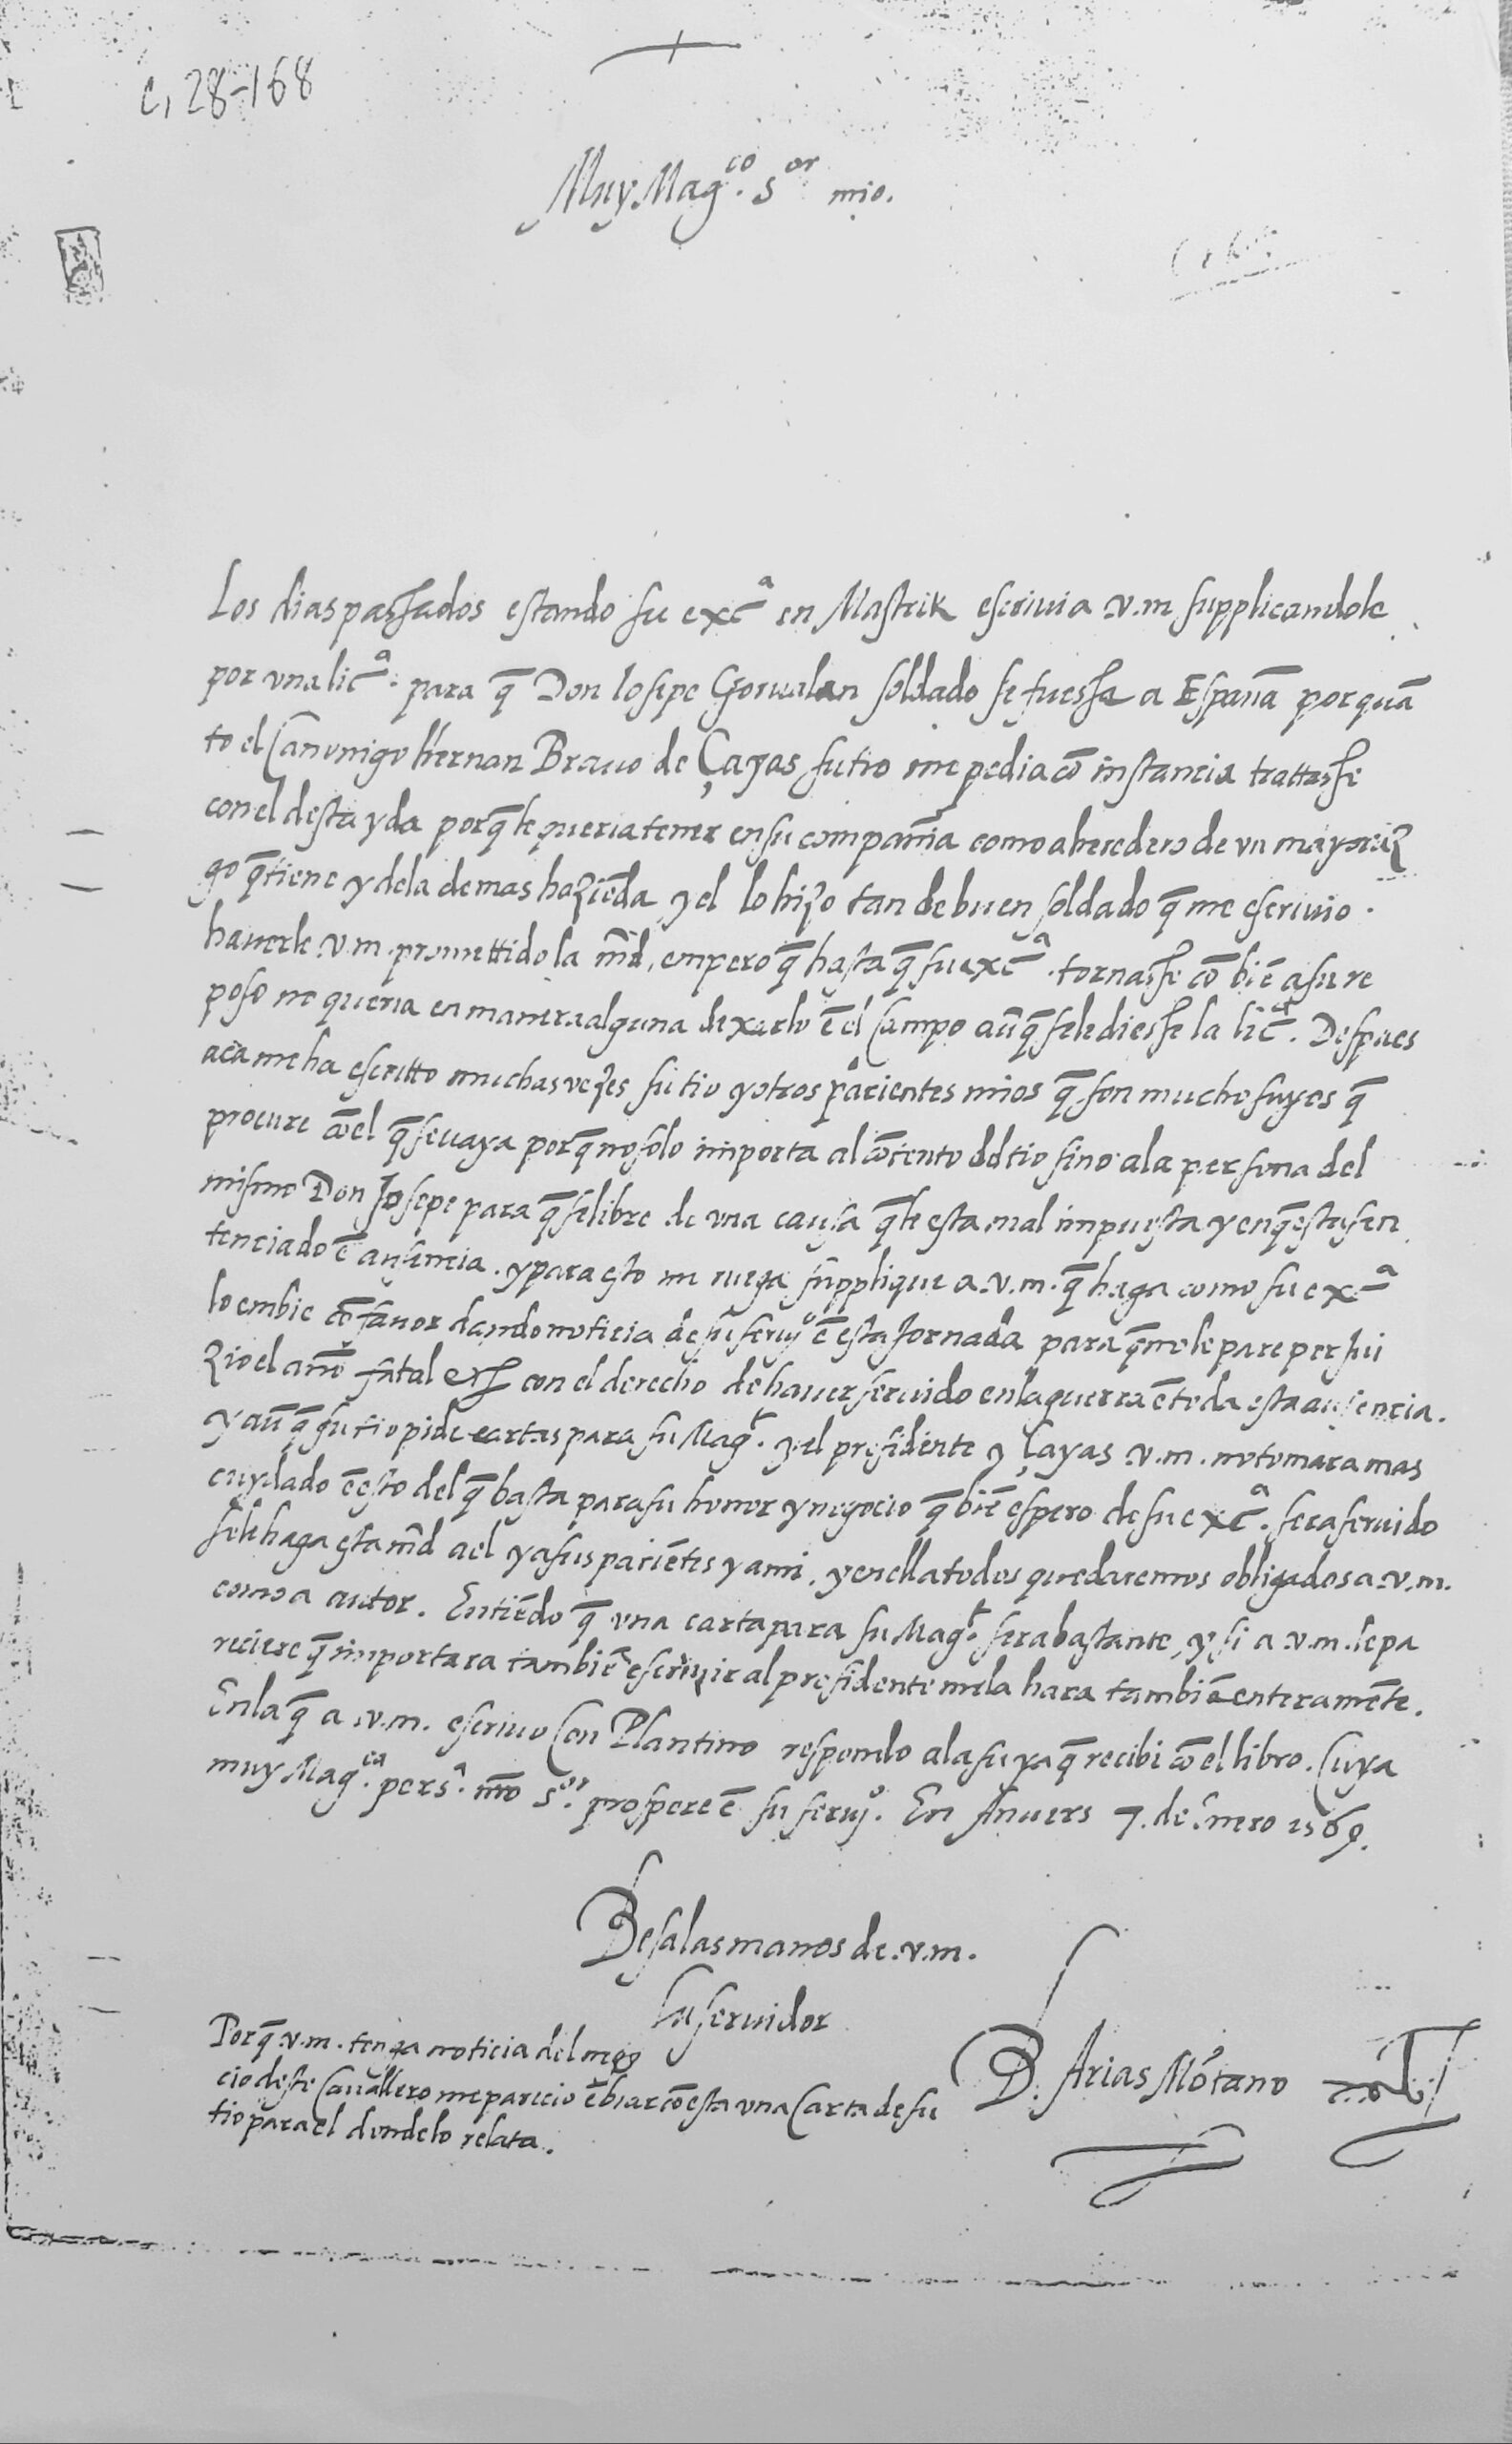 c, 28-168
Muy Mag.co S.or mio.
Los dias passados estando su exc.a en Mastrik escriui a v.m supplicandole
por vna lic.a para q̄ Don Iosepe Gorualan soldado se fuesse a Espan̄a por quā
to el Canonigo Hernan Brauo de Çayas su tio me pedia cō instancia trattasse
con el desta yda porq̄ le queria tener en su compan̄ia como a heredero de vn mayoraz
go q̄ tiene y dela demas haziēda, y el lo hizo tan de buen soldado q̄ me escriuio.
hauerle v.m. promettido la m̄d, empero q̄ hasta q̄ su exc.a tornasse cō biē a su re
poso no queria en manera alguna dexarlo ē el Campo aūq̄ sele diesse la lic.a. Despues
aca me ha escritto muchas vezes su tio y otros parientes mios q̄ son mucho suyos q̄
procure cō el q̄ se vaya porq̄ no solo importa al cōtento del tio sino ala persona del
mismo Don Iosepe para q̄ se libre de vna causa q̄ le esta mal impuesta y en q̄ esta sen
tenciado ē ausencia. y para esto me ruega supplique a .v.m. q̄ haga como su ex.a
lo embie cō fauor dando noticia de su seruj.o ē esta Jornada para q̄ no le pare perjui
zio el an̄o fatal con el derecho de hauer seruido en la guerra ē toda esta ausencia.
y aūq̄ su tio pide cartas para su Mag.t y el presidente y Çayas v.m. no tomara mas
cuydado ē esto del q̄ basta para su honor y negocio q̄ biē espero de su exc.a sera seruido
sele haga esta m̄d a el y a sus pariētes y a mi, y en ella todos quedaremos obligados a .v.m.
como a autor. Entiēdo q̄ vna carta para su Mag.t sera bastante, y si a .v.m. le pa
reciere q̄ importara tambiē escriuir al presidente mela hara tambiē enteramēte.
En la q̄ a .v.m. escriuo Con Plantino respondo ala suya q̄ recibi cō el libro. Cuya
muy Mag.ca pers.a nr̄o S.or prospere ē su seruj.o. En Anuers 7. de Enero 1569.
Besa las manos de .v.m.
Su seruidor
B. Arias Mōtano
Porq̄ .v.m. tenga noticia del nego
cio deste Cauallero me parecio ēbiar cō esta vna Carta de su
tio para el donde lo relata.